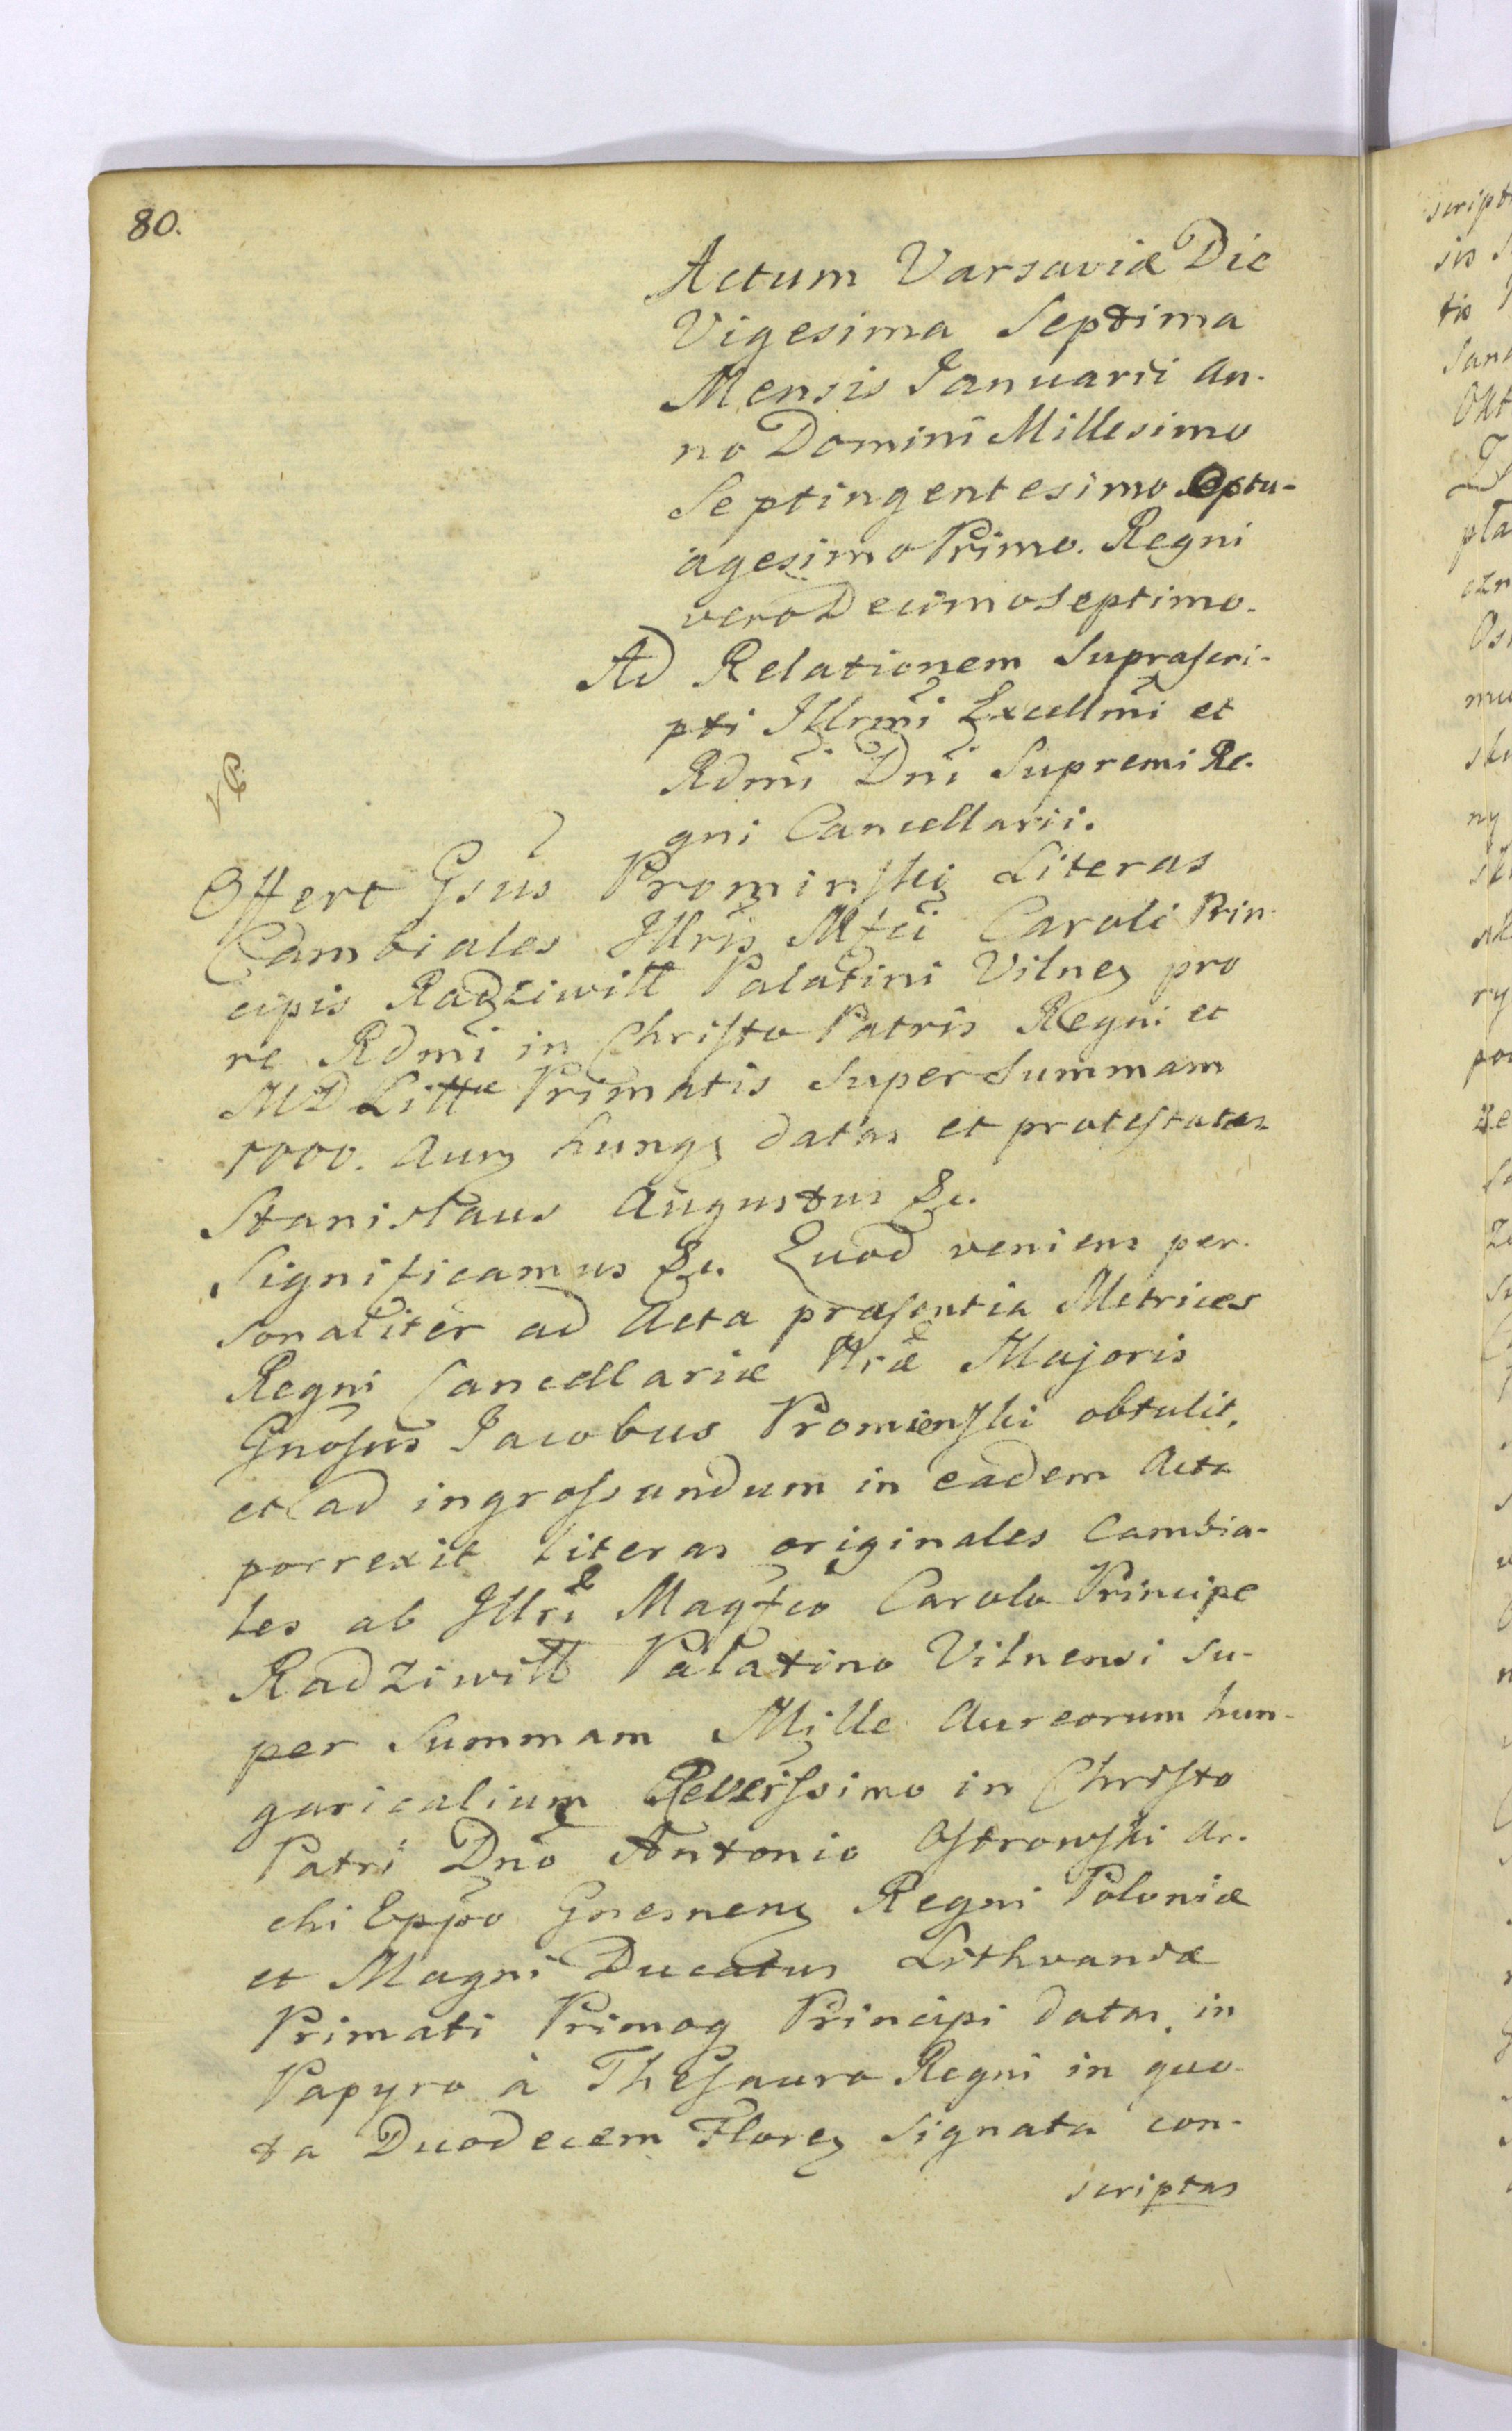 80.
Actum Varsaviæ Die
Vigesima Septima
Mensis Januarii an-
no Domini Millesimo
Septingentesimo Septu-
agesimo Primo. Regni
vero Decimo Septimo.
Ad Relationem Suprascri-
pti Illrmi Excellmi et
Rdmi Dni Supremi Re-
gni Cancellarii.
Offert Gsus Prominski Literas
Cambiales Illris Mfci Caroli Prin-
cipis Radziwiłł Palatini Vilnen pro
re Rdmi in Christo Patris Regni et
MD Litt Primatis Super Summam
1000. Aur hung datas et protestatas
Stanislaus Augustus &c.
Significamus &c. Quod veniens per-
sonaliter ad Acta præsentia Metrices
Regni Cancellariæ Nræ Majoris
Gnosus Jacobus Promienski obtulit,
et ad ingrossandum in eadem Acta
porrexit Literas originales Cambia-
les ab Illri Magfco Carolo Principe
Radziwiłł Palatino Vilnensi su-
per Summam Mille Aureorum hun-
garicalium Reverissimo in Christo
Patri Dno Antonio Ostrowski Ar-
chi Eppo Gnesnen Regni Poloniæ
et Magni Ducatus Lithvaniæ
Primati Primoq Principi datas, in
Papyro à Thesauro Regni in quo-
ta Duodecem Floren Signata con-
scriptas